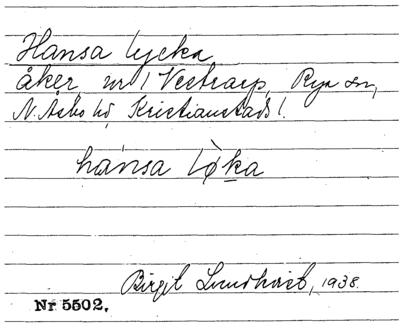 Hansa lycka
åker nr 1 Vestraxp, Rya sn,
N. Åsbo hd, Kristianstads l.
hánsa lø̀ka
Birgit Lundkvist, 1938.
Nr 5502.